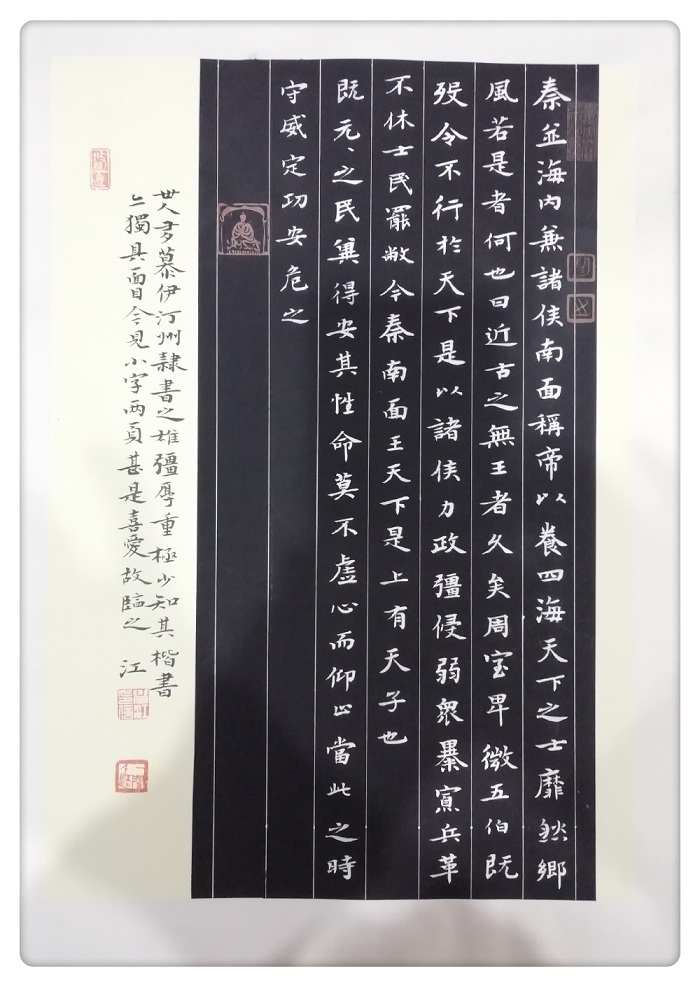 秦並海内兼諸侯南面稱帝以養四海天下之士靡然鄉
風若是者何也曰近古之無王者久矣周室卑微五伯既
殁令不行於天下是以諸侯力政彊侵弱衆暴寡兵革
不休士民罷敝今秦南面王天下是上有天子也
既元〻之民冀得安其性命莫不虛心而仰上當此之時
守威定功安危之
世人多慕伊汀州隸書之雄彊厚重極少知其楷書
亦獨具面目今見小字兩頁甚是喜愛故臨之 江